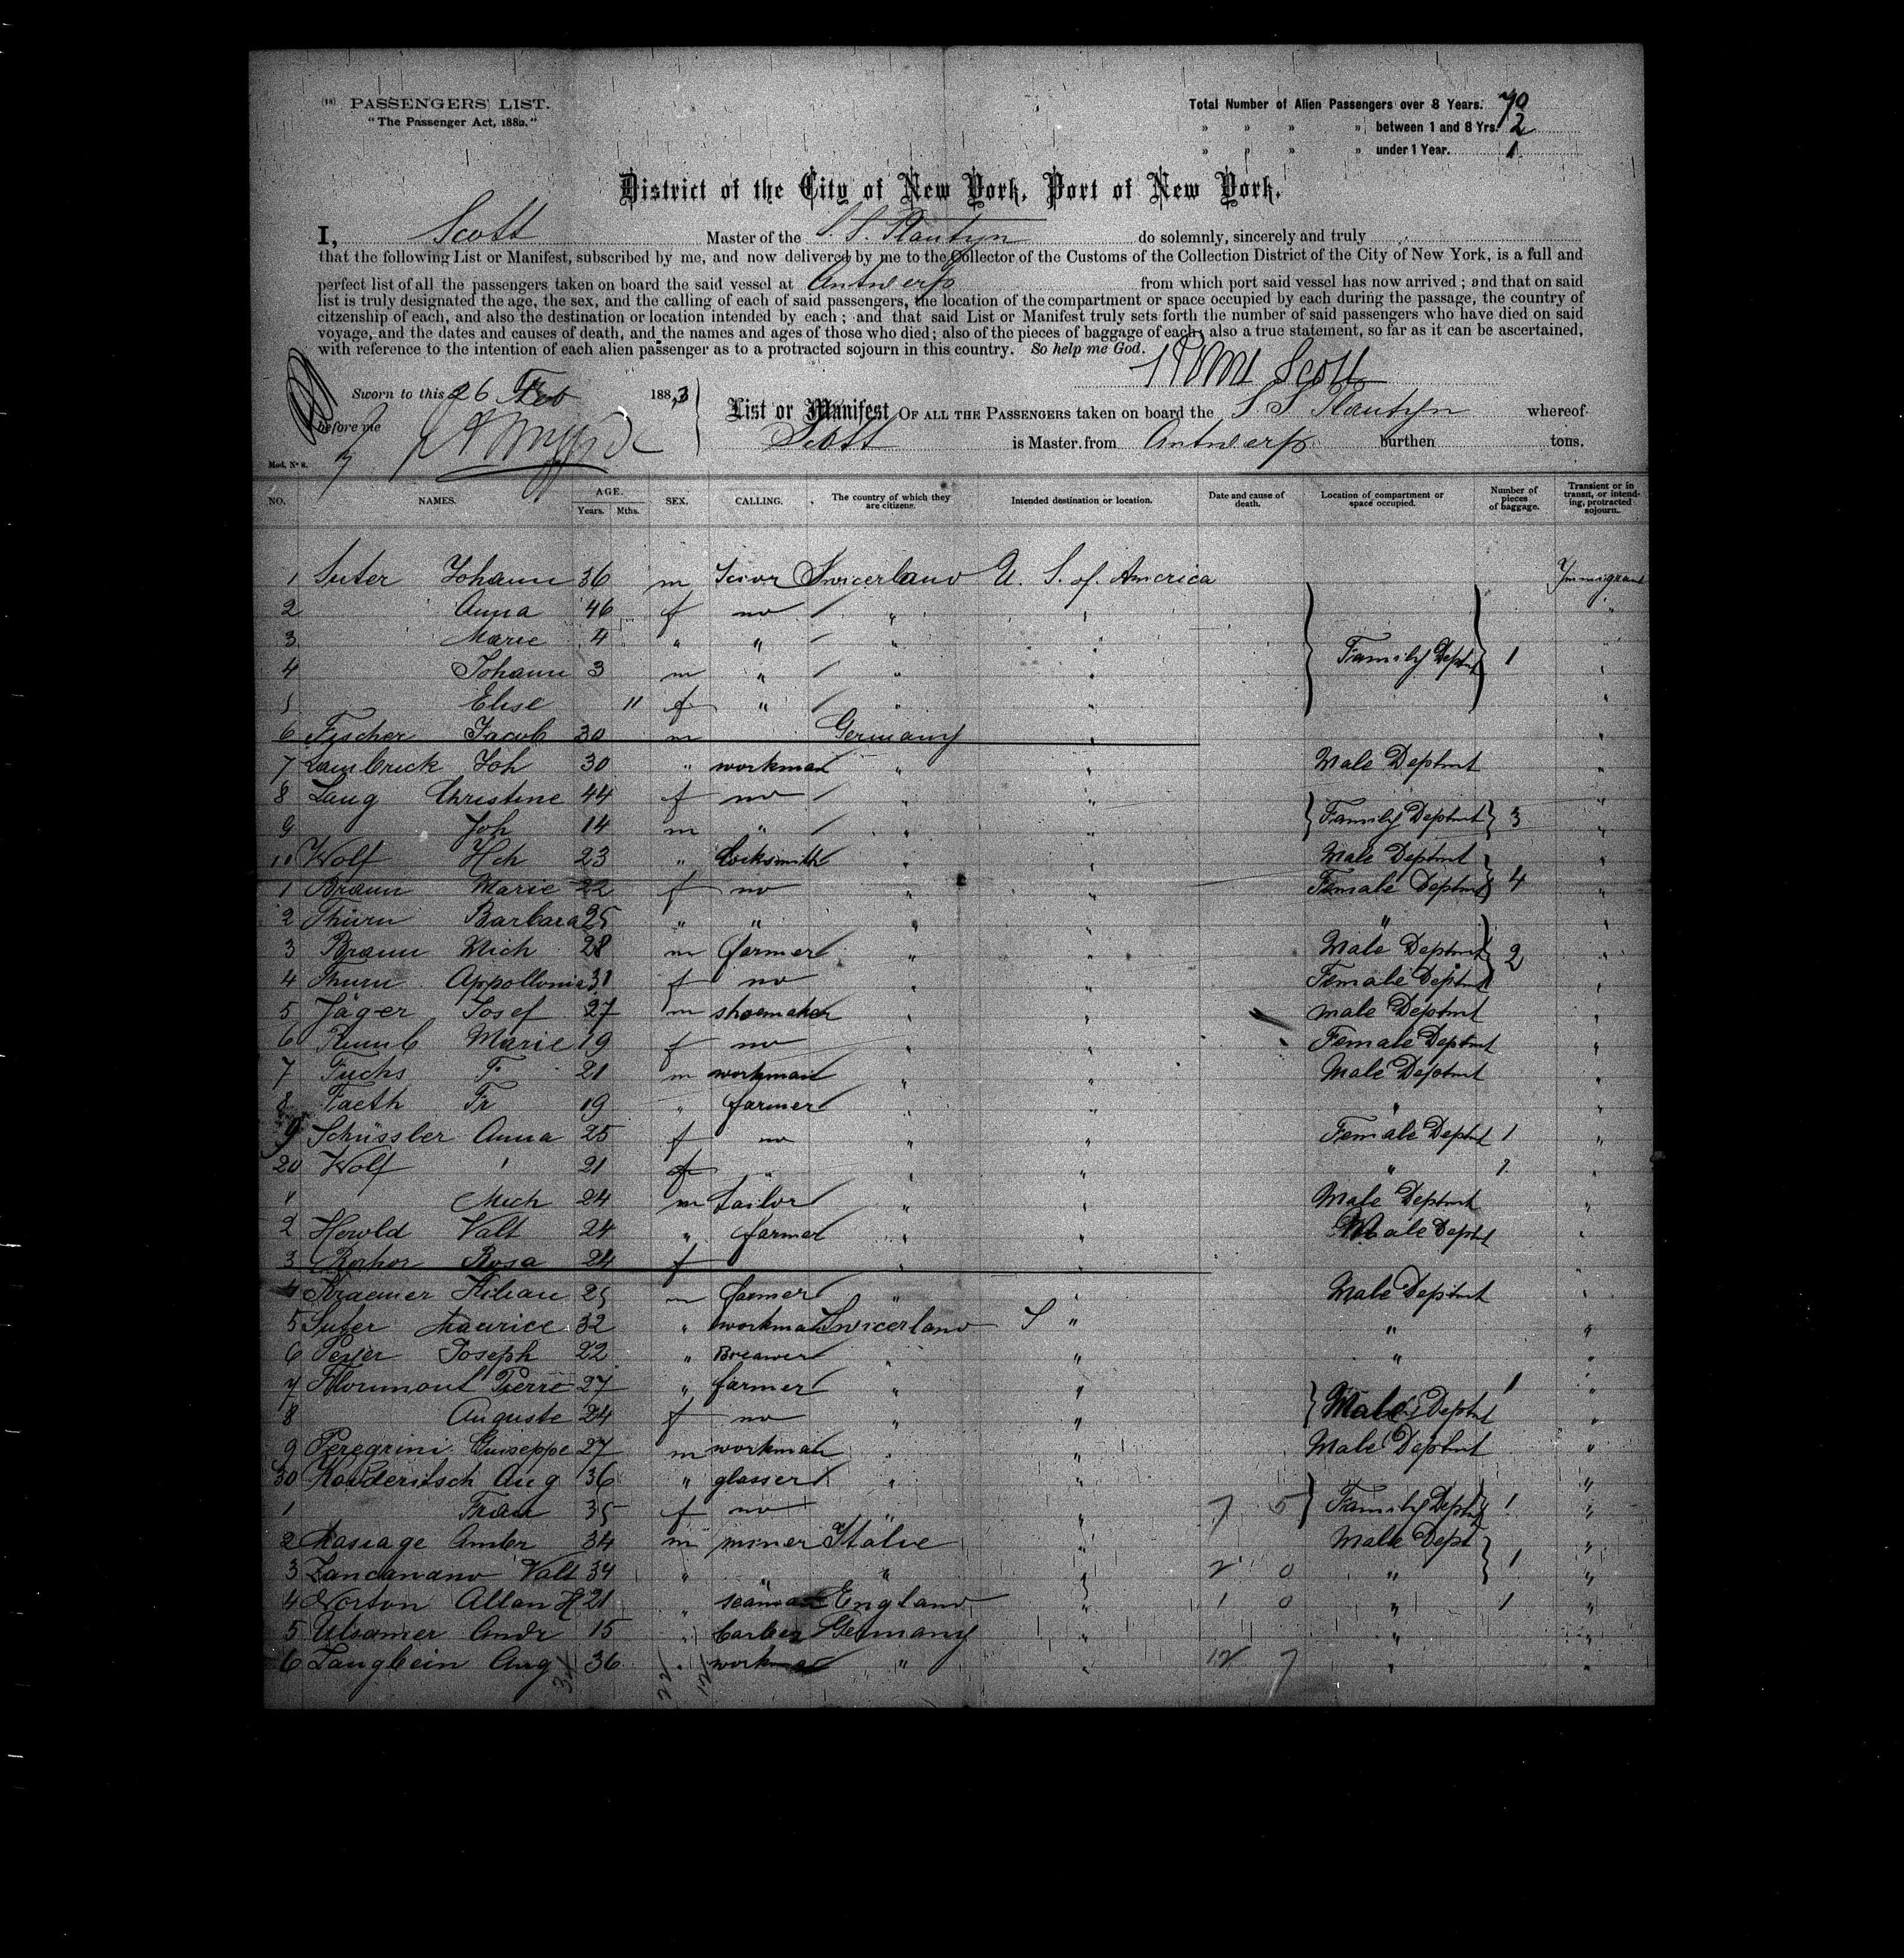 (18) PASSENGERS' LIST.
"The Passenger Act, 1882."
Total Number of Alien Passengers over 8 Years. 70
" " " " between 1 and 8 Yrs. 2
" " " " under 1 Year. 1
District of the City of New York, Port of New York.
I, Scott Master of the S. S. Plantyn do solemnly, sincerely and truly
that the following List or Manifest, subscribed by me, and now delivered by me to the Collector of the Customs of the Collection District of the City of New York, is a full and
perfect list of all the passengers taken on board the said vessel at Antwerp from which port said vessel has now arrived; and that on said
list is truly designated the age, the sex, and the calling of each of said passengers, the location of the compartment or space occupied by each during the passage, the country of
citzenship of each, and also the destination or location intended by each; and that said List or Manifest truly sets forth the number of said passengers who have died on said
voyage, and the dates and causes of death, and the names and ages of those who died; also of the pieces of baggage of each; also a true statement, so far as it can be ascertained,
with reference to the intention of each alien passenger as to a protracted sojourn in this country. So help me God.
Scott
Sworn to this 26 Feb 1883
before me
List or Manifest OF ALL THE PASSENGERS taken on board the S S Plantyn whereof
Scott is Master from Antwerp burthen tons.
Mod. No 8.
NO. NAMES. AGE. Years. Mths. SEX. CALLING. The country of which they are citizens. Intended destination or location. Date and cause of death. Location of compartment or space occupied. Number of pieces of baggage. Transient or in transit, or intending, protracted sojourn.
1 Suter Johann 36 m Swicerland U. S. of America Immigrant
2 Anna 46 f no / " " "
3 Marie 4 " " / " " Family Deptmt 1 "
4 Johann 3 m " / " " "
5 Elise 11 f " / " " "
6 Fischer Jacob 30 m Germany " "
7 Lambrick Joh 30 " workman " " Male Deptmt "
8 Lang Christine 44 f no / " " "
9 Joh 14 m " / " " Family Deptmt 3 "
10 Wolf Hch 23 " locksmith " " Male Deptmt "
1 Braun Marie 22 f no " " Female Deptmt 4 "
2 Thurn Barbara 25 " " " " " "
3 Braun Mich 28 m farmer " " Male Deptmt 2 "
4 Thurn Appollonia 31 f no " " Female Deptmt "
5 Jäger Josef 27 m shoemaker " " male Deptmt "
6 Marie 19 f no " " Female Deptmt "
7 Fuchs F 21 m workman " " Male Deptmt "
8 Faeth Fr 19 " farmer " " " "
9 Schüssler Anna 25 f no " " Female Deptmt 1 "
20 Wolf " 21 f " " 1 "
1 Mich 24 m tailor " " Male Deptmt "
2 Herold Valt 24 " farmer " " Male Deptmt "
3 Rosa 24 f " " "
4 Kraemer Kilian 25 m farmer " " Male Deptmt "
5 Suter Maurice 32 " workman Swicerland S " " "
6 Joseph 22 " Breawer " " " "
7 Flourmont Pierre 27 " farmer " " 1 "
8 Auguste 24 f no " " Male Deptmt "
9 Peregrini Guiseppe 27 m workman " " Male Deptmt "
30 Aug 36 " glasser " " "
1 Frau 35 f no " " 7 5 Family Deptmt 1 "
2 Ambr 34 m miner Italie " Male Dept "
3 Zancanano Valt 34 " " " " 2 0 " 1 "
4 Norton Allan H 21 " seaman England " 1 0 " 1 "
5 Ulsamer Andr 15 " barber Germany " " "
6 Langbein Aug 36 " workman " " 12 7 " "
34 22 12